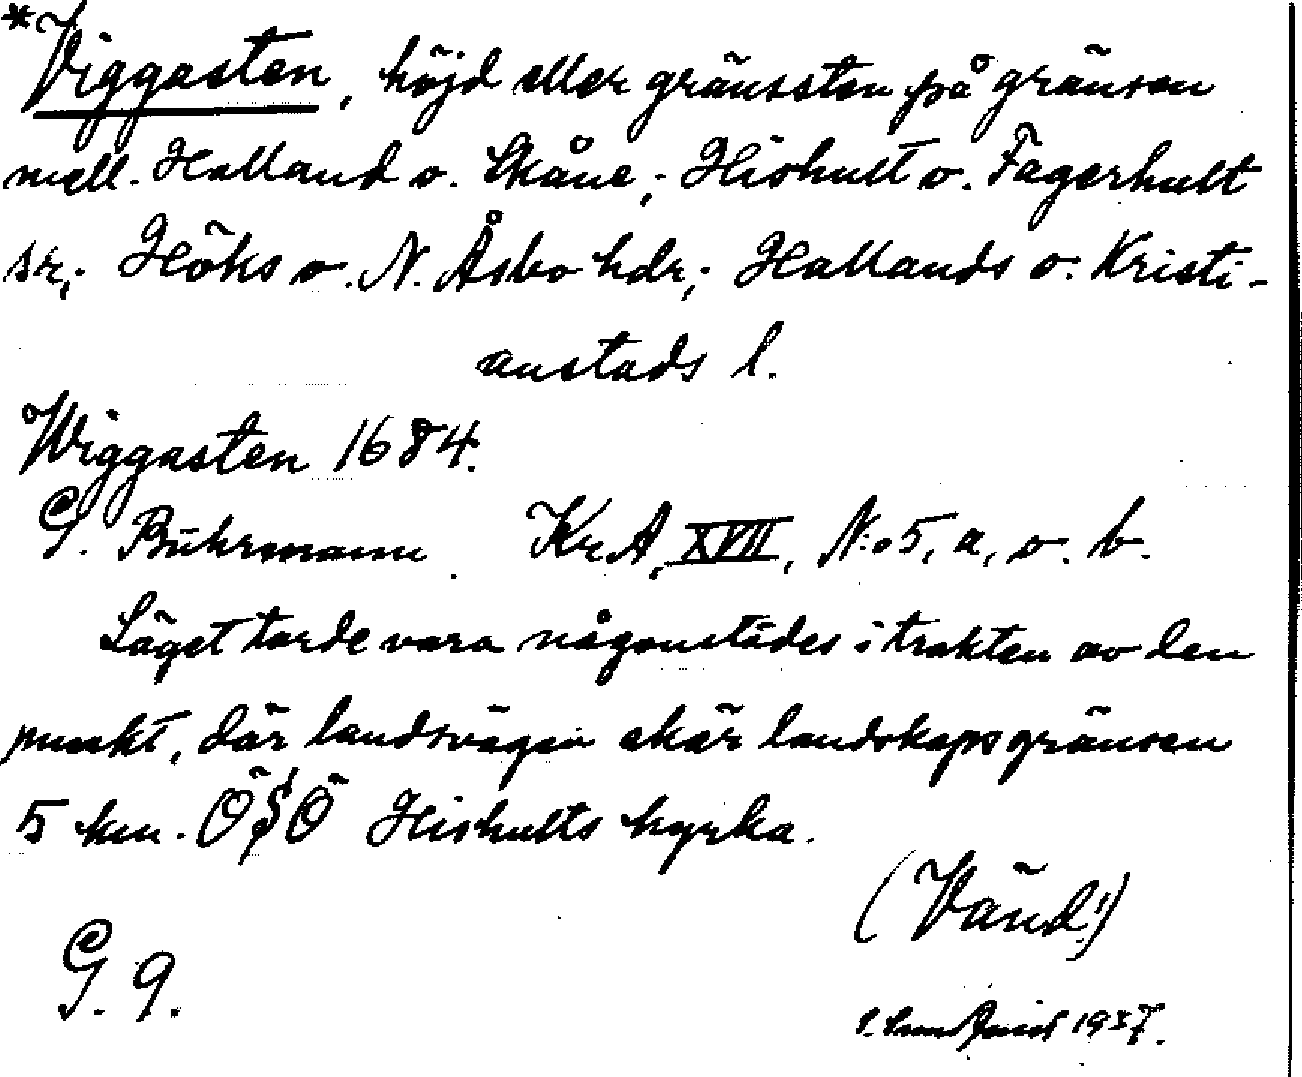 *Viggasten, höjd eller gränssten på gränsen
mell. Halland o. Skåne; Hishult o. Fagerhult
sr; Höks o. N. Åsbo hdr; Hallands o. Kristi-
anstads l.
Wiggasten 1684.
G. Buhrmann. KrA, XVII, N:o 5, a, o. b.
Läget torde vara någonstädes i trakten av den
punkt, där landsvägen skär landskapsgränsen
5 km. ÖSÖ Hishults kyrka.
(Vänd!)
G. 9.
1937.